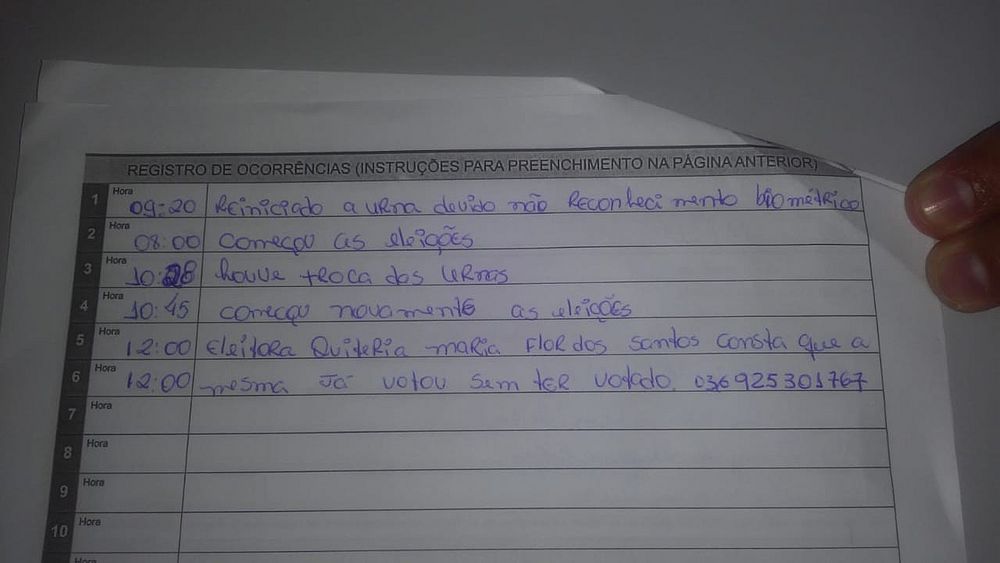 REGISTRO DE OCORRÊNCIAS (INSTRUÇÕES PARA PREENCHIMENTO NA PÁGINA ANTERIOR)
1 Hora 09:20 Reiniciado a urna devido não Reconhecimento biométrico
2 Hora 08:00 começou as eleições
3 Hora 10:28 houve troca das urnas
4 Hora 10:45 começou novamente as eleições
5 Hora 12:00 Eleitora Quiteria maria Flor dos Santos consta que a
6 Hora 12:00 mesma Já votou sem ter votado. 036925301767
7 Hora
8 Hora
9 Hora
10 Hora
Hora